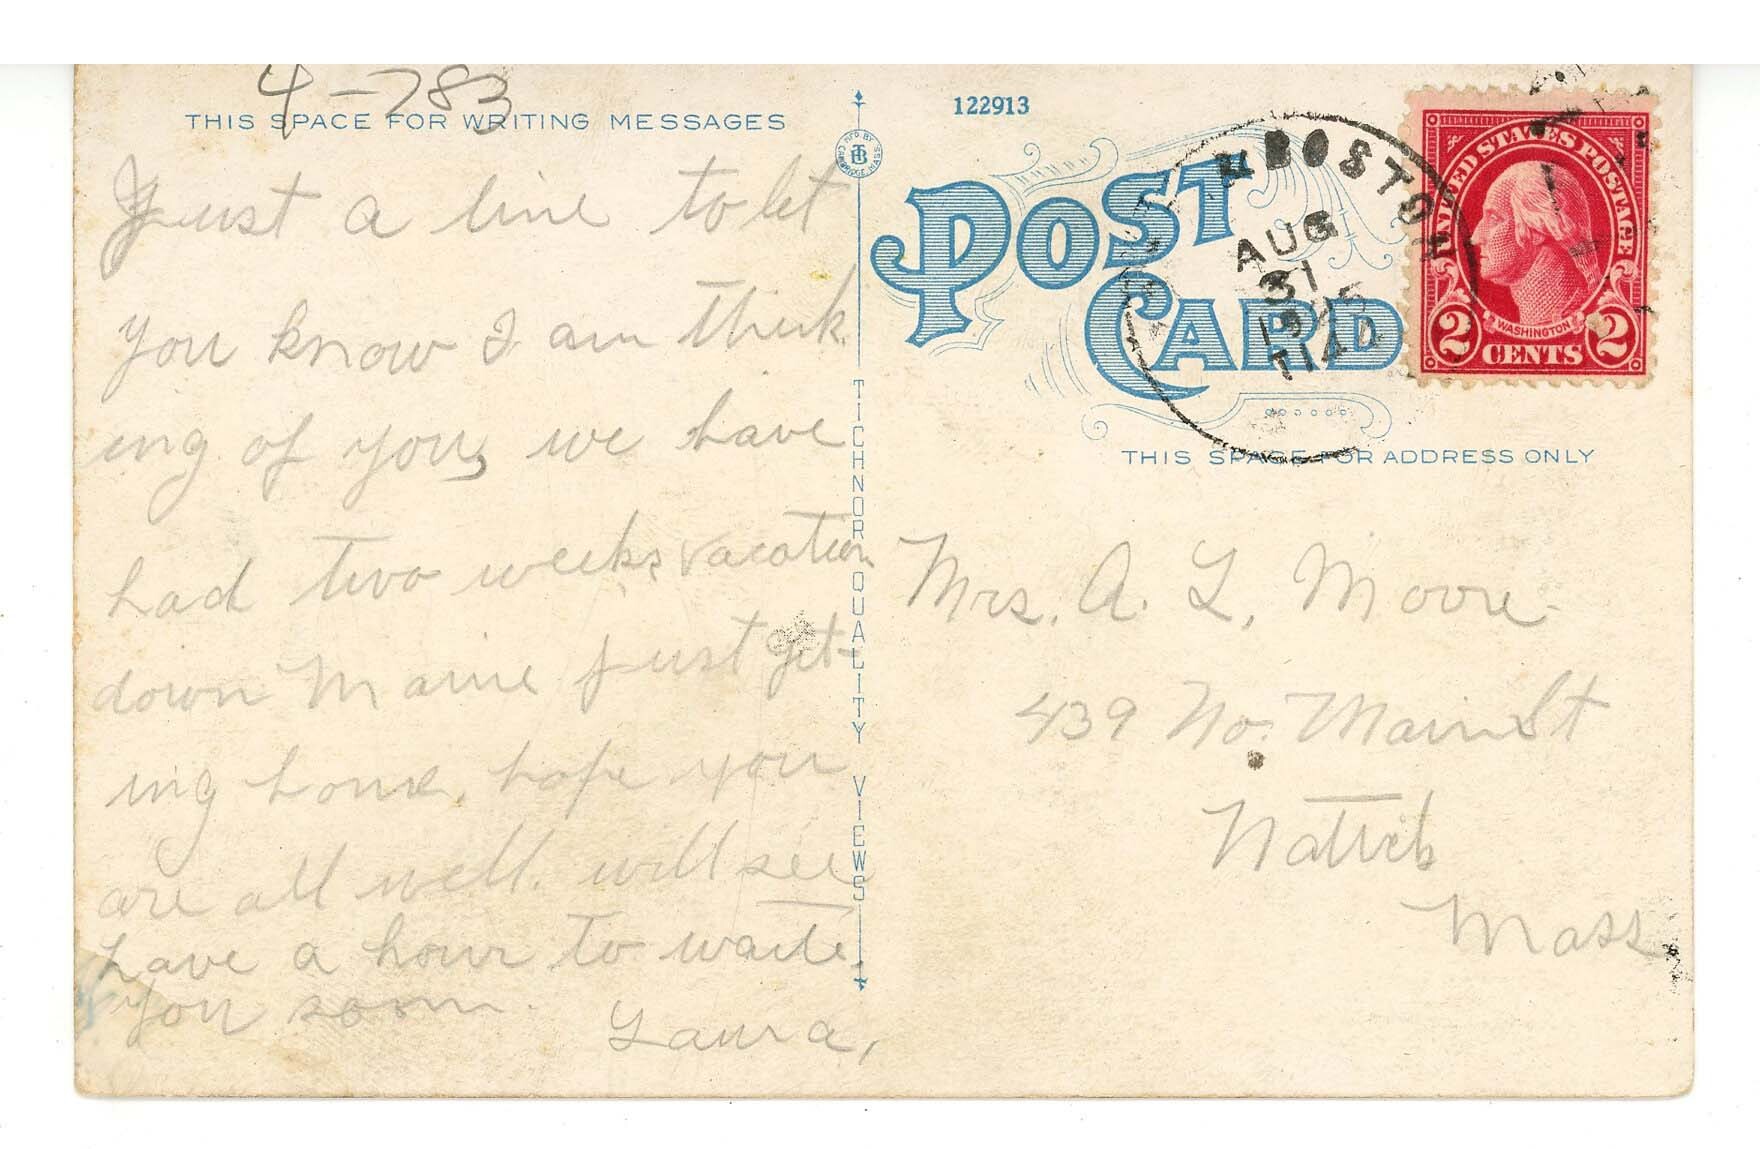 4-783
THIS SPACE FOR WRITING MESSAGES
Just a line to let
you know I am think
ing of you, we have
had two weeks vacation
down Maine just get-
ing home. hope you
are all well. will see
have a hour to waite.
you soon.
Laura,
MF'D. BY
TB
CAMBRIDGE, MASS.
TICHNOR QUALITY VIEWS
122913
POST
CARD
BOSTON
AUG
31
UNITED STATES POSTAGE
WASHINGTON
2 CENTS 2
THIS SPACE FOR ADDRESS ONLY
Mrs. A. L. Moore
439 No. Main St
Natick
Mass